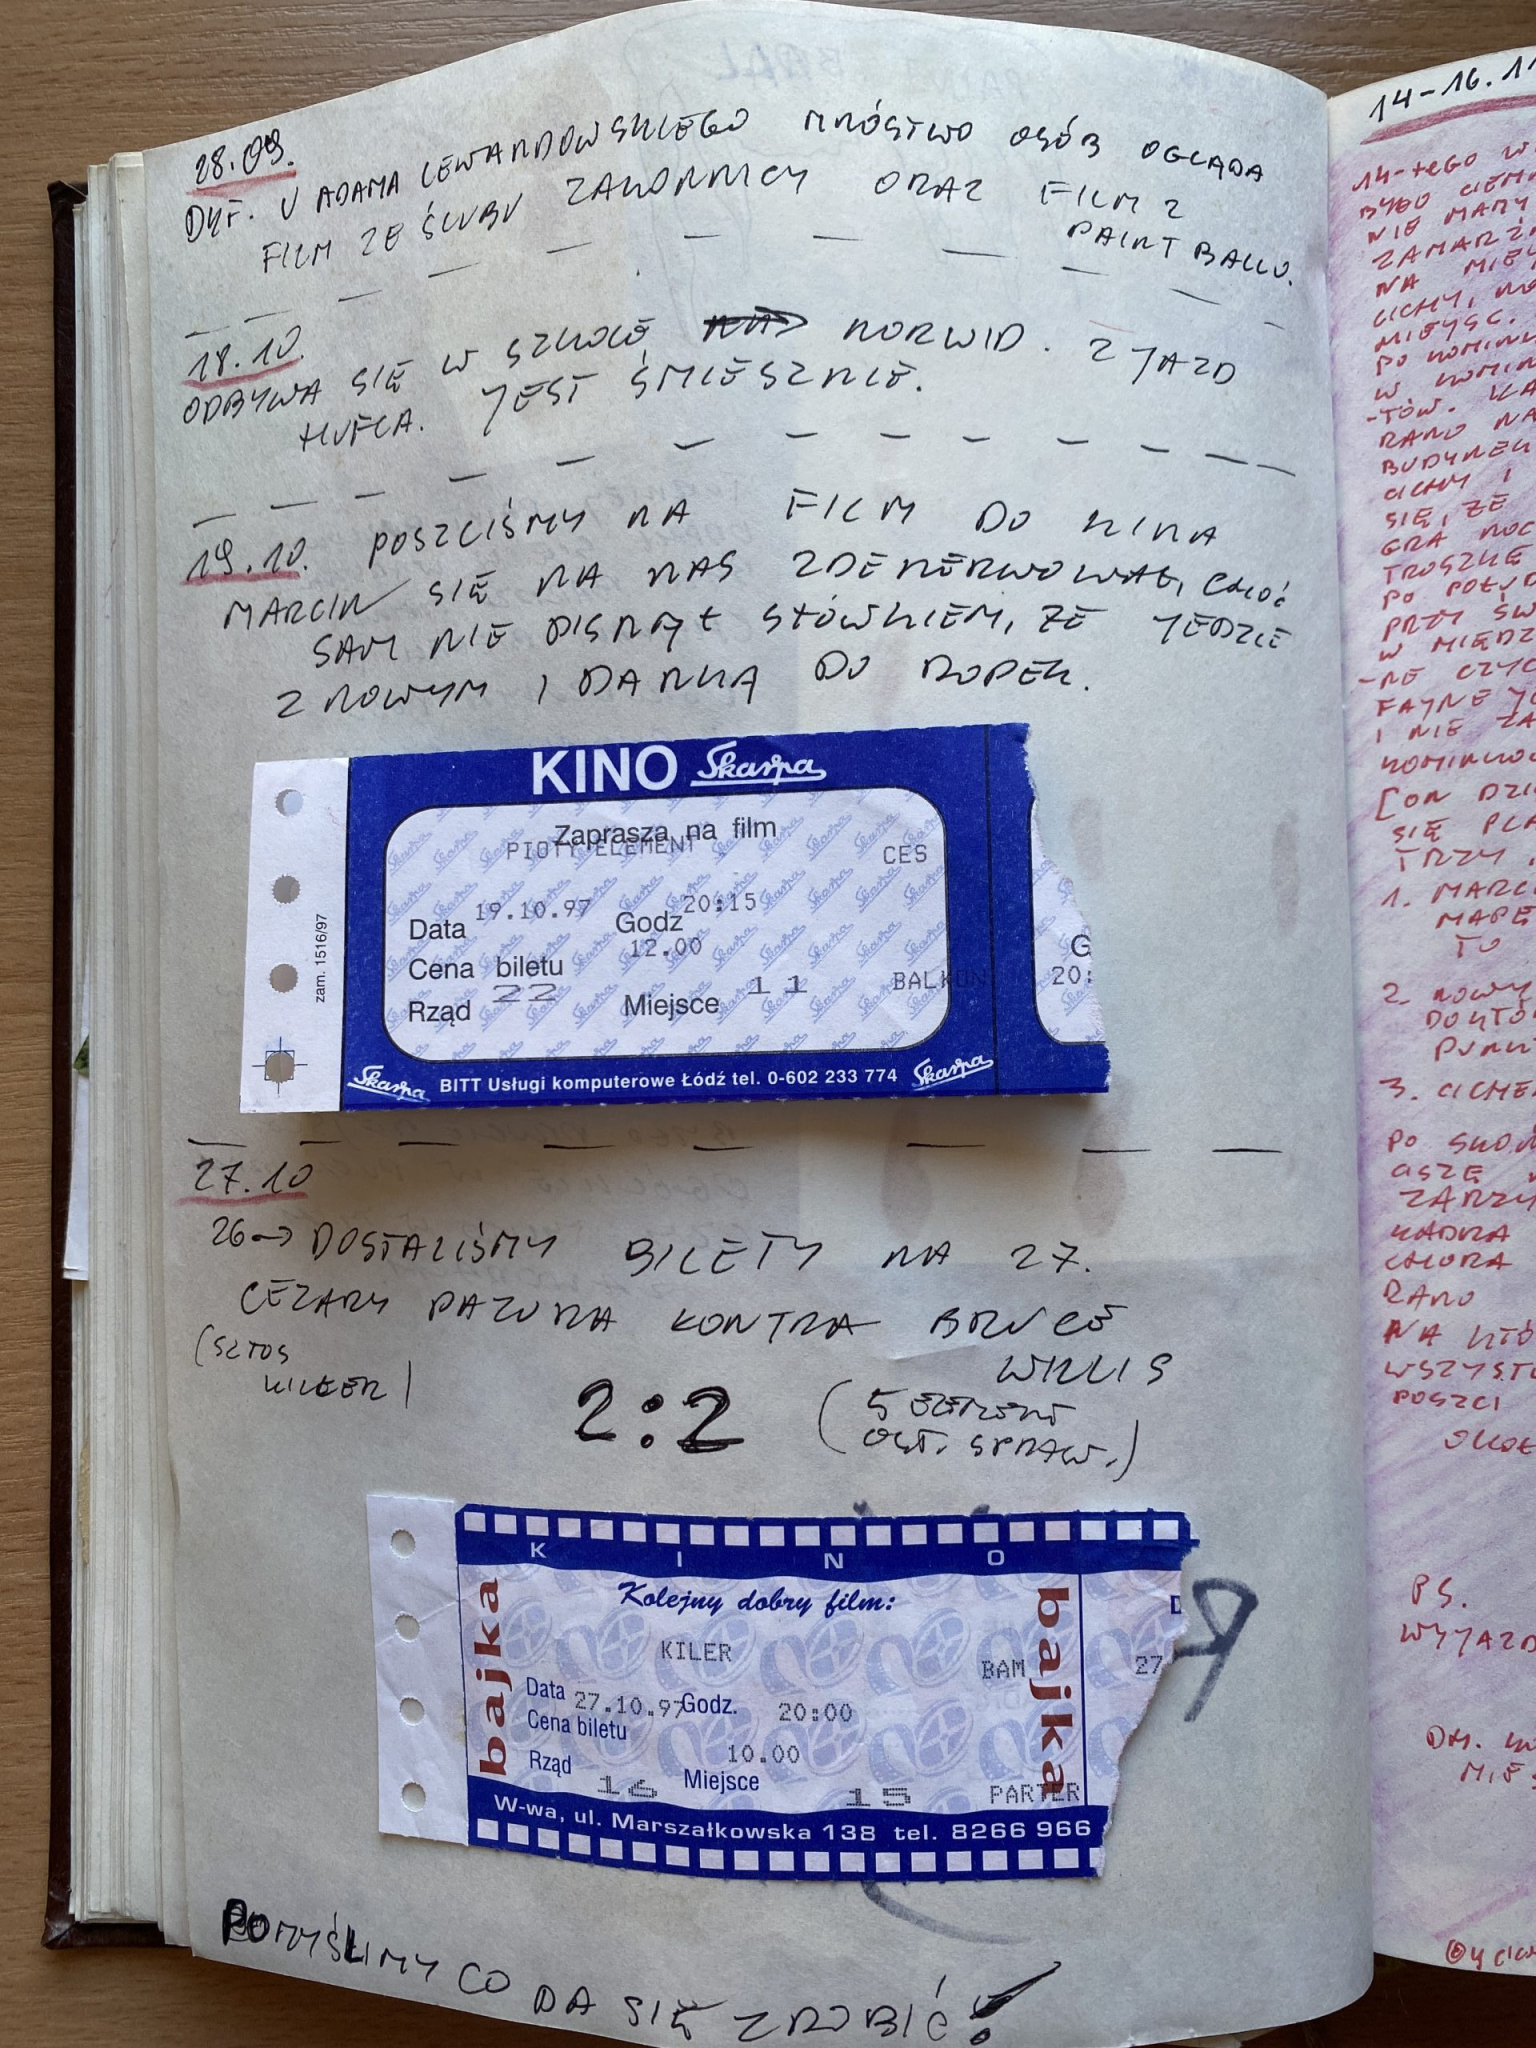 28.09.
DYF. U ADAMA LEWANDOWSKIEGO MNÓSTWO OSÓB OGLĄDA
FILM ZE ŚLUBU ZAKONNICY ORAZ FILM Z
PAINT BALLU.
18.10.
ODBYWA SIĘ W SZKOLE NORWID. ZJAZD
HUFCA. JEST ŚMIESZNIE.
19.10. POSZLIŚMY NA FILM DO KINA
MARCIN SIĘ NA NAS ZDENERWOWAŁ, CHOĆ
SAM NIE PISNĄŁ SŁÓWKIEM, ŻE JEDZIE
Z NOWYM I DANKĄ DO ROPEK.
KINO Skarpa
Zaprasza na film
PIOTY ELEMENT CES
Data 19.10.97 Godz 20:15
Cena biletu 12.00
Rząd 22 Miejsce 11 BALKON
G
20:
zam. 1516/97
Skarpa BITT Usługi komputerowe Łódź tel. 0-602 233 774 Skarpa
27.10
26→ DOSTALIŚMY BILETY NA 27.
CEZARY PAZURA KONTRA BRUCE
WILLIS
(SZTOS
KILLER)
2:2
(5 ELEMENT
OST. SPRAW.)
KINO
bajka
Kolejny dobry film:
KILER
BAM
bajka
27
Data 27.10.97 Godz. 20:00
Cena biletu 10.00
Rząd 16 Miejsce 15 PARTER
W-wa, ul. Marszałkowska 138 tel. 8266 966
POMYŚLIMY CO DA SIĘ ZROBIĆ!
14-16.11
14-TEGO W
BYŁO CIEM
NIE MAMY
ZAMARZ
NA MIEJ
CICHY, NO
MIEJSC.
PO KOMINK
W KOMIN
-TÓW. KA
RANO NA
BUDYNEK
CICHY I
SIĘ, ŻE
GRA NOC
TROSZKĘ
PO POŁUD
PRZY ŚW
W MIĘDZ
-NE CZYC
FAJNE JE
I NIE ZA
KOMINKO
[ON DZI
SIĘ PLA
TRZY
1. MARC
MAPĘ
TO
2. NOWY
DOKTO
PUNKT
3. CICHE
PO SKO
CISZĘ
ZARZY
KADRA
CHORA
RANO
NA KTÓ
WSZYST
POSZCI
OKOŁ
PS.
WYJAZD
MIE